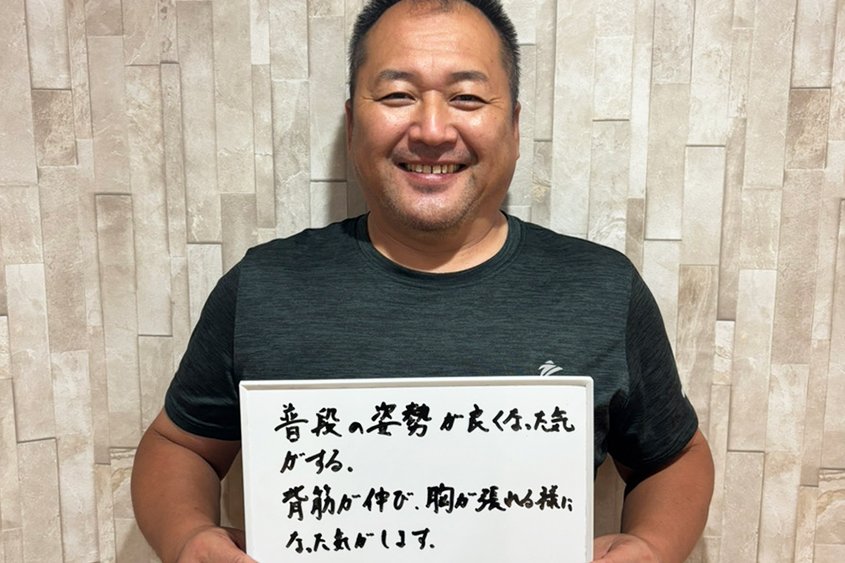 普段の姿勢が良くなった気
がする。
背筋が伸び、胸が張れる様に
なった気がします。